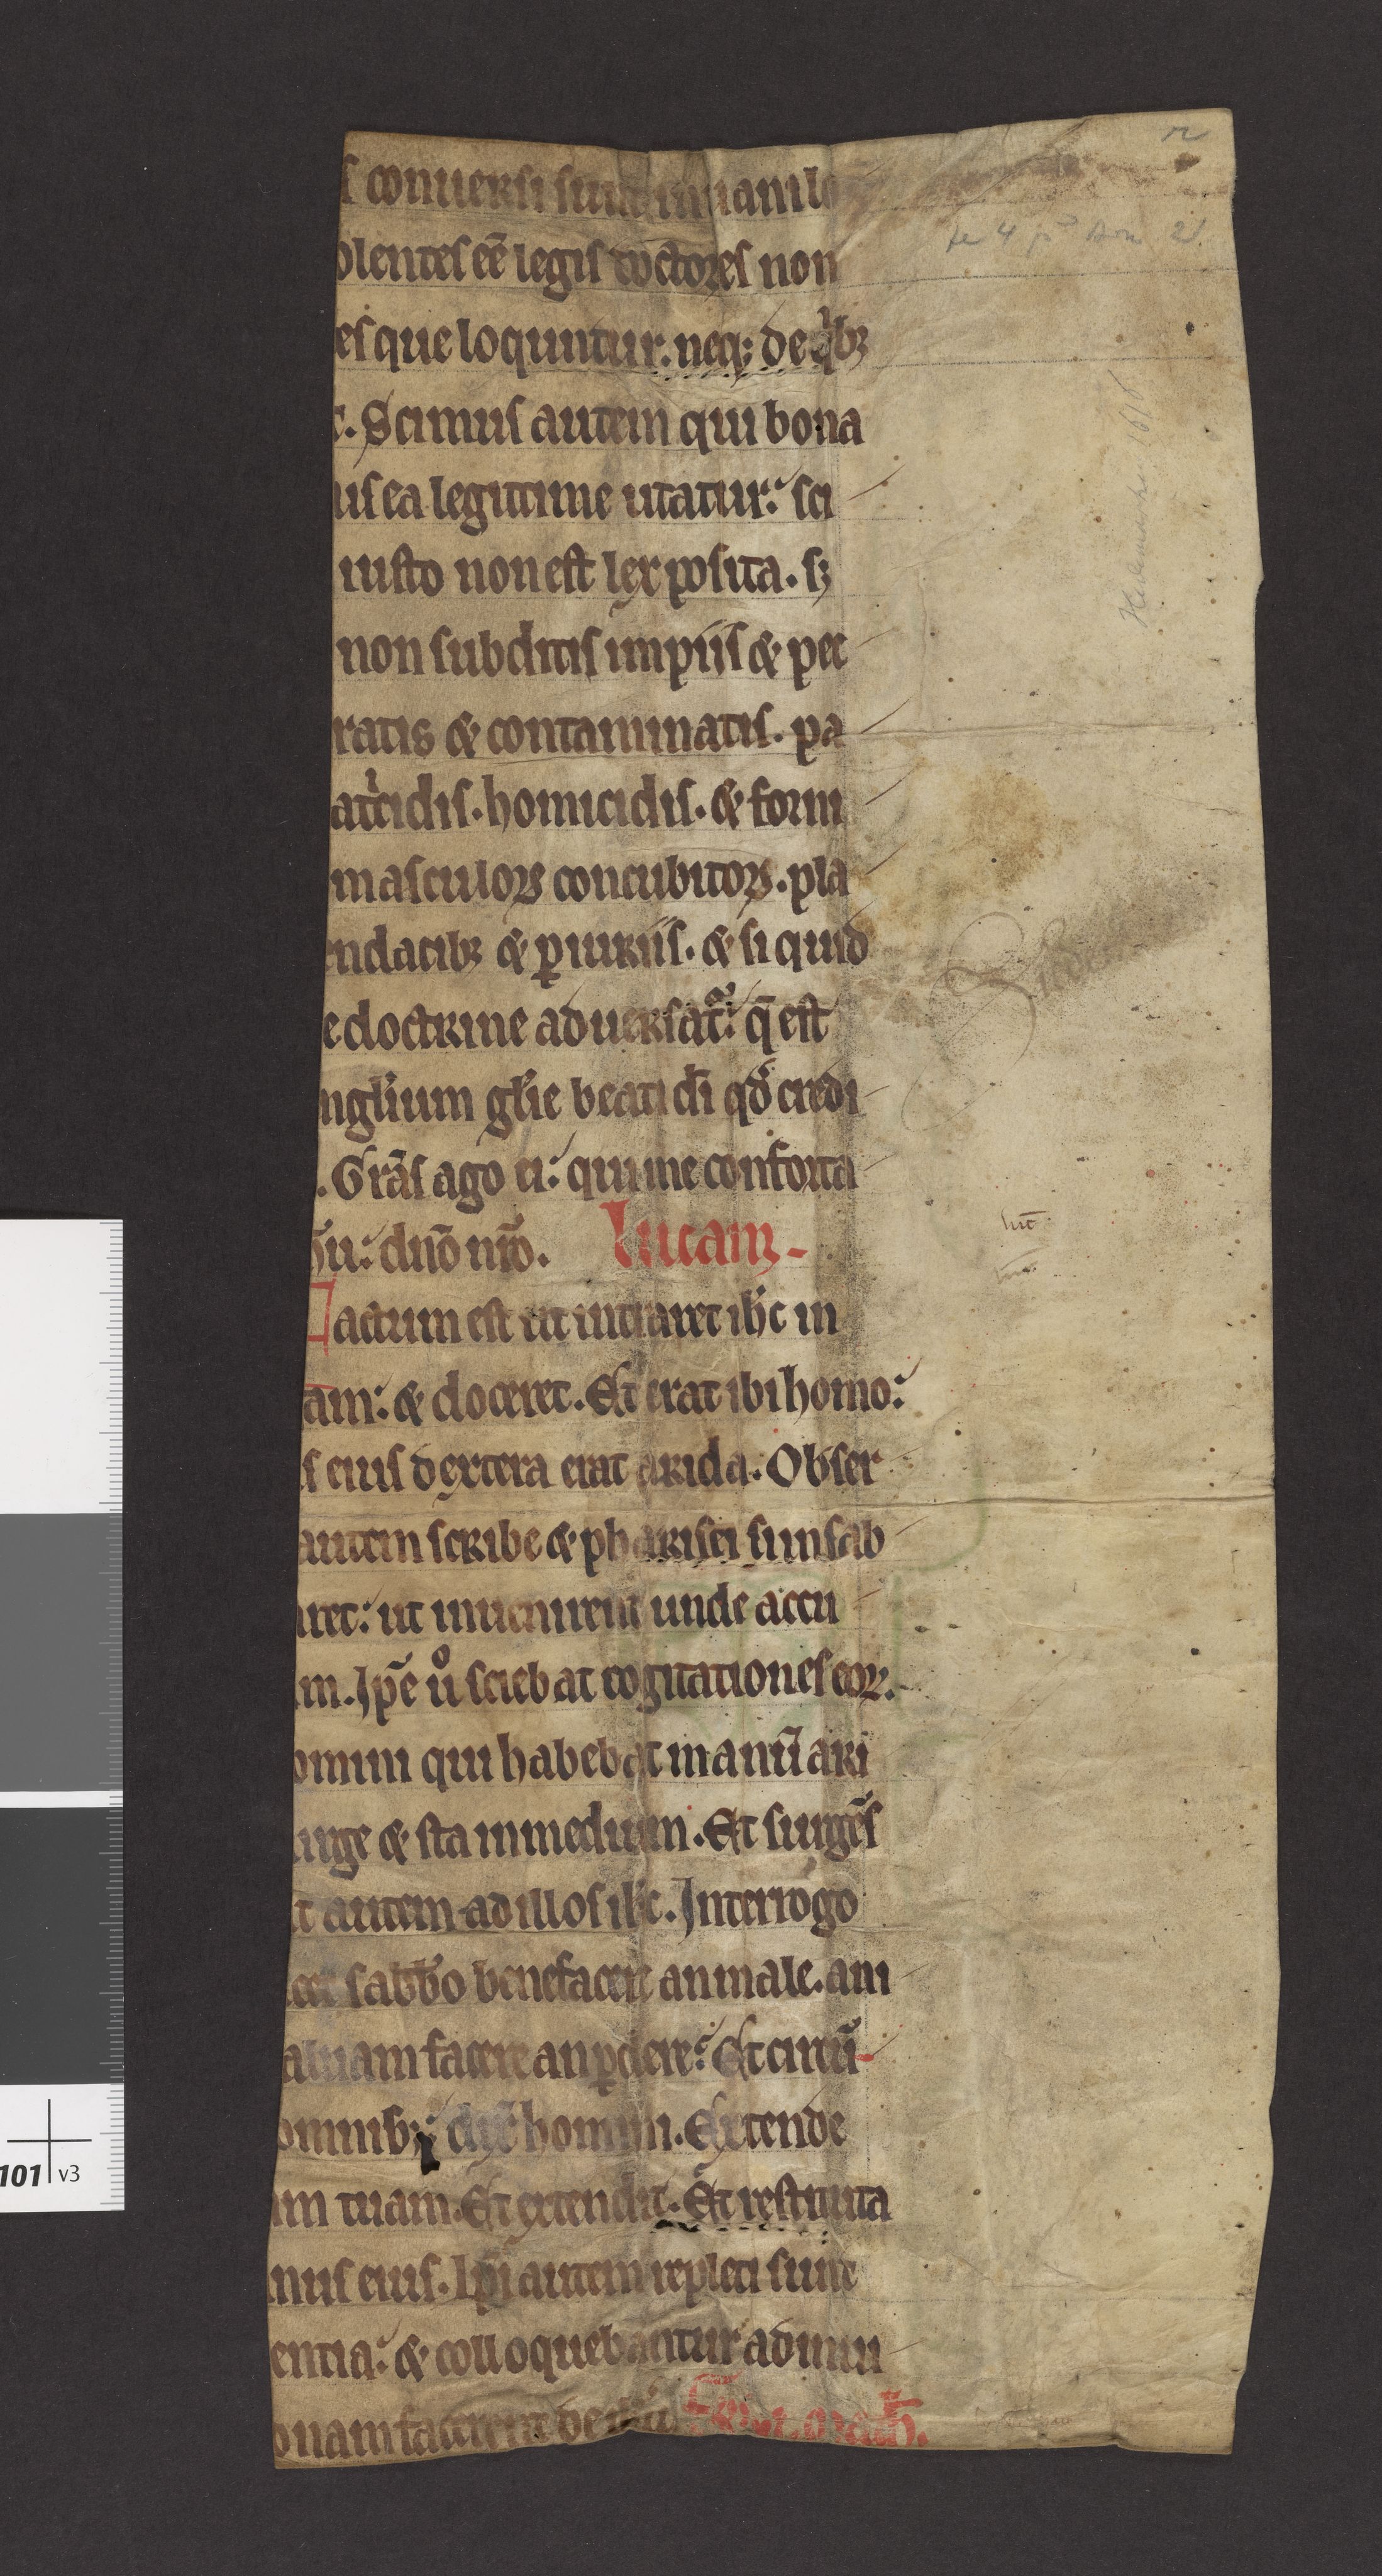 s conuersi sunt in uanilo
olentes eē legis doctores non
es que loquuntur. neq; de qͥbꝫ
t. Scimus autem qui bona
uis ea legitime utatur: sci
iusto non est lex posita. sꝫ
non subditis impiis & pec
ratis & contaminatis. pa
atͥcidis. homicidis. & forni
masculoꝝ concubitoꝝ. pla
ndacibꝫ & ꝑiuriis. & si quid
e doctrine aduersat᷑: q̄ est
nglium glīe beati dī qđ credi
. Grās ago ei: qui me conforta
hū: dn̄o nr̄o. lucam
Factum est ut intraret ihc̄ in
am: & doceret. Et erat ibi homo:
s eius dextera erat arida. Obser
autem scribe & pharisei si in sab
uret: ut inuenirent unde accu
m. Ip̄e uͦ sciebat cogitationes eoꝝ.
omini qui habebat manū ari
urge & sta in medium. Et surgēs
t autem ad illos ihc̄. Interrogo
cet sabb̄o benefacere an male. ani
aluam facere an ꝑdere? Et circū
omnibꝫ: dix̄ homini. Extende
m tuam. Et extendit. Et restituta
nus eius. Ipi autem repleti sunt
entia: & colloquebantur ad inui
nam facerent de ihū
Hedemarken 1616